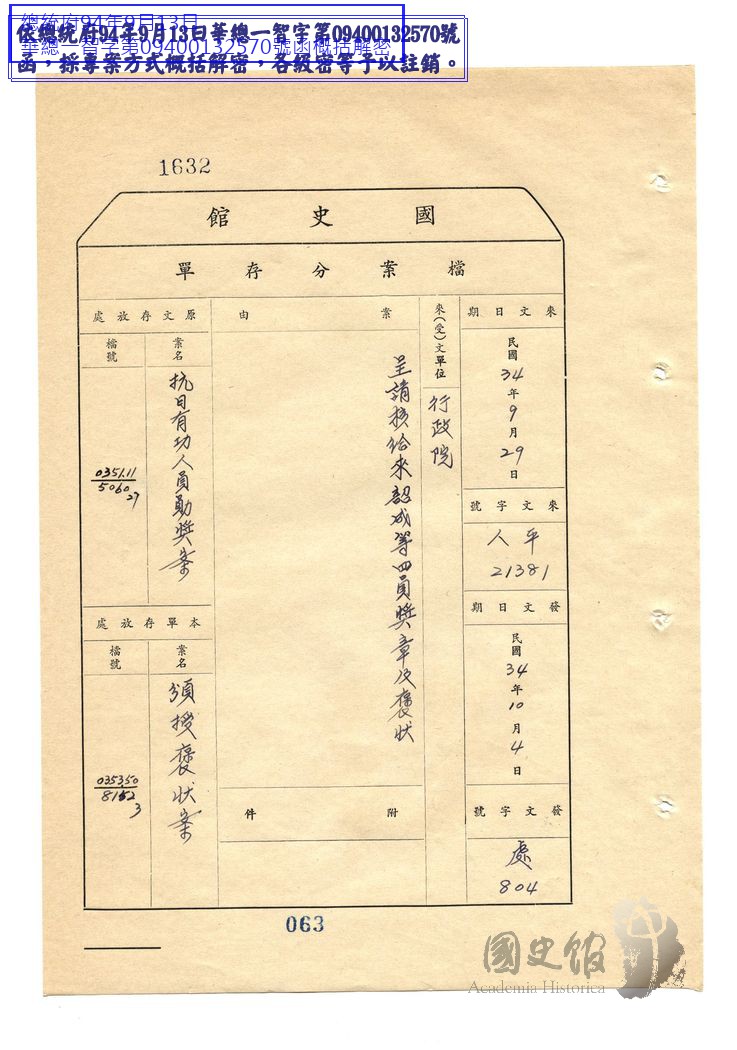 總統府94年9月13日
華總一智字第09400132570號函概括解密
依總統府94年9月13日華總一智字第09400132570號
函，採專案方式概括解密，各級密等予以註銷。
1632
國史館
檔案分存單
來文日期
民國34年9月29日
來文字號
人平
21381
發文日期
民國34年10月4日
發文字號
處
804
來(受)文單位
行政院
案由
呈請核給來韶成等四員獎章及褒狀
附件
原文存放處
案名
抗日有功人員勛獎案
檔號
0351.11
5060
27
本單存放處
案名
頒授褒狀案
檔號
035350
8152
3
063
國史館
Academia Historica